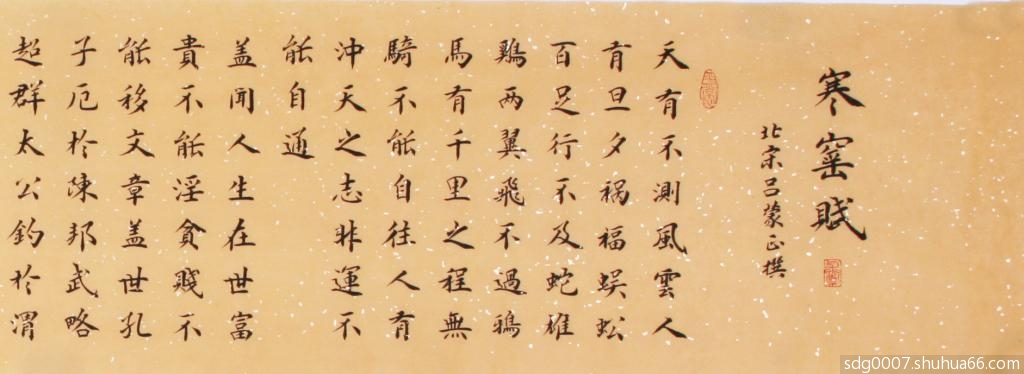 寒窑赋
北宋吕蒙正撰
天有不测風雲人
有旦夕祸福蜈蚣
百足行不及蛇雄
鷄两翼飛不過鴉
馬有千里之程無
騎不能自往人有
沖天之志非運不
能自通
盖闻人生在世富
貴不能淫贫賤不
能移文章盖世孔
子厄於陳邦武略
超群太公釣於渭
sdg0007.shuhua66.com